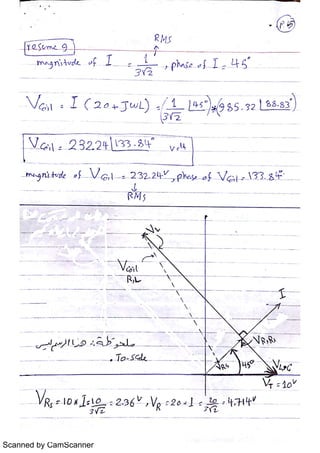 P5
resume 9
RMS
magnitude of I = 1/3√2 , phase of I = 45°
Vcoil = I (20+JωL) = (1/3√2 ∠45°)*(985.32 ∠88.83°)
Vcoil = 232.24 ∠133.84° Volt
magnitude of Vcoil = 232.24ᵛ , phase of Vcoil = 133.84°
RMS
VL
Vcoil
R,L
I
ملحوظة: هذا الرسم ليس
To-scale.
VR,Rs
VRs
45°
VT = 10ᵛ
VRs = 10*I = 10/3√2 = 2.36ᵛ , VR = 20*I = 20/3√2 = 4.714ᵛ
Scanned by CamScanner